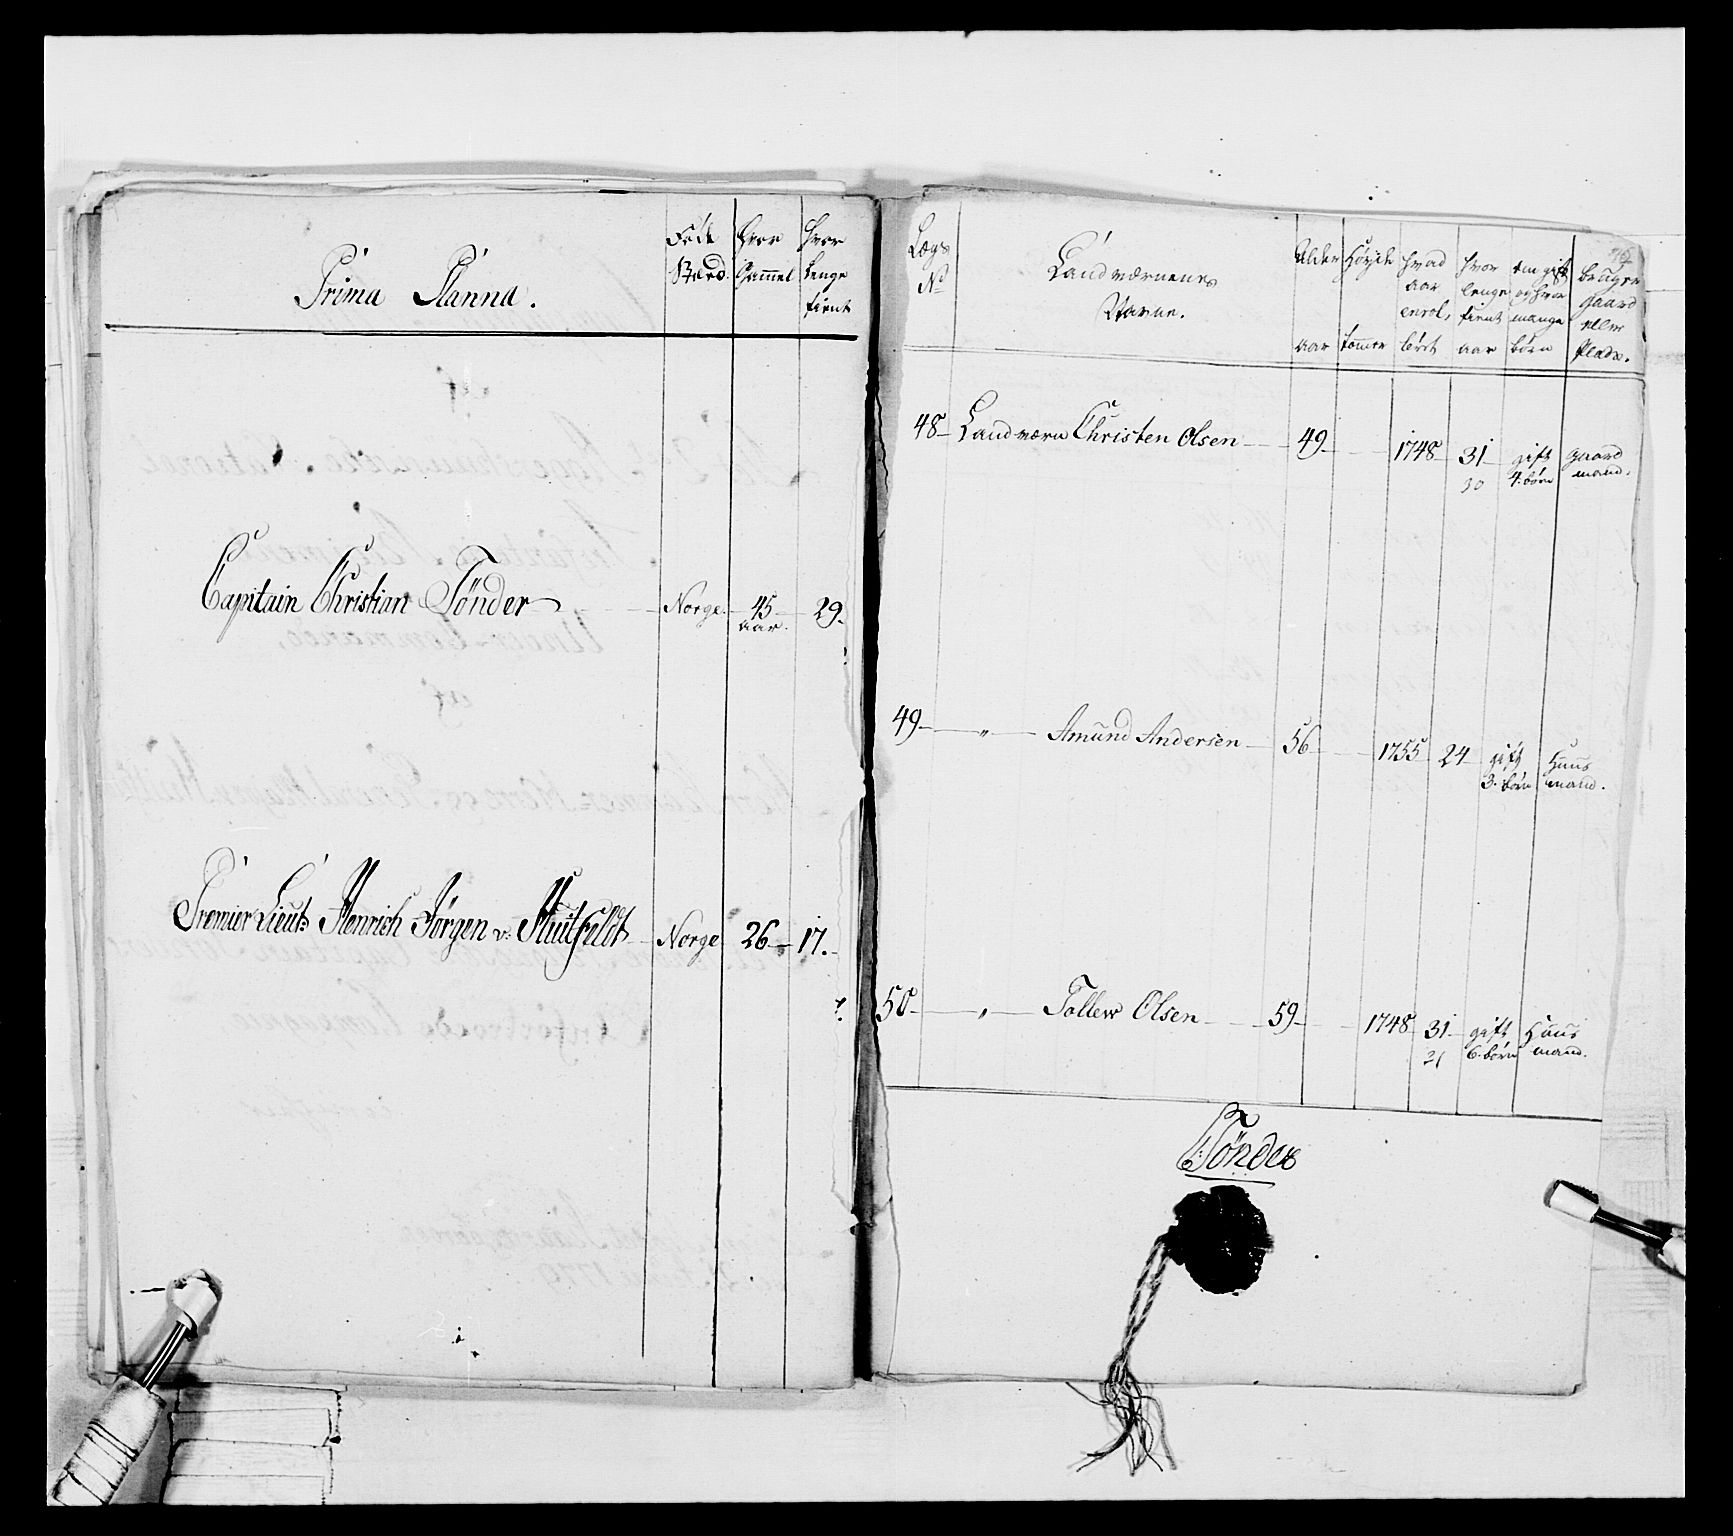 Prima Planna.
Føde Stæd. Hvor Gammel Hvor Lenge tient
Capitain Christian Tönder Norge. 45 aar. 29.
Premier Lieut: Henrich Jörgen v: Huitfeldt Norge 26 17.
Lægs No Landværnenes Navne. Alder aar Höyde tommer hvad aar enrolleret hvor lenge tient aar om gift og hvor mange börn bruger gaard eller Plads.
48 Landværn Christen Olsen 49 1748 31 gift gaard
30 4. börn mand.
49 " Amund Andersen 56 1755 24 gift Huus
3. börn mand.
50 " Tollew Olsen 59 1748 31 gift Huus
31 6. börn mand.
Tönder